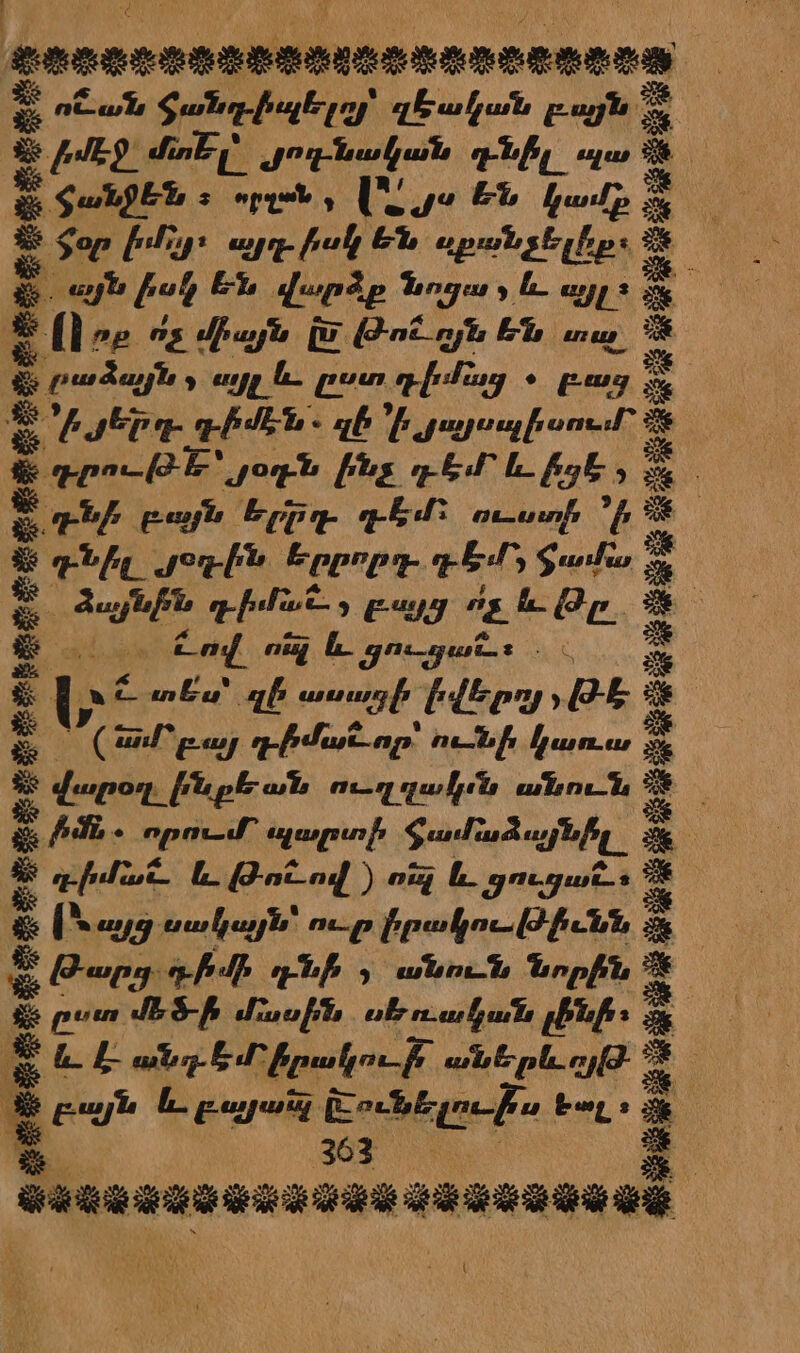 ու̃ան հանդիպելոյ՝ դէական բայն
իմէջ մտել՝ յոգնական դնիլ պա
հանջեն ։ որզան , Այս են կամք
հօր իմոյ։ այդ իսկ են սքանչելիք։
այն իսկ են վարձք նոցա , և այլ ։
Սոք ոչ միայն ըստ թու̃ոյն են տար
բաձայն , այլ և ըստ դիմաց . բաց
՚ի յերրդ դիմէն . զի ՚ի յայսպիսում
գրութե՝ յօդն ինչ դեմ և իցէ ,
դնի բայն երրրդ դէմ։ ուստի ՚ի
դնիլ յօդին երրորդ դէմ, համա
ձայնին դիմա̃ , բայց ոչ և թը
̃ով ո̃պ և ցուցա̃ ։
Իսկ տես՝ զի ասացի իվերոյ , թէ
( ամ բայ դիմա̃որ՝ ունի կառա
վարօղ ինքեան ուղղակն անուն
իմն . որում պարտի համաձայնիլ
դիմա̃ և թու̃ով ) ո̃պ և ցուցա̃ ։
Բայց սակայն՝ ուր իրակութիւնն
թարց դիմի դնի , անուն նորին
ըստ մեծի մասին սեռական լինի։
և է անդէմ իրակուի̃ աներևոյթ
բայն և բայապ̃ ընունելուի̃ս եալ ։
363